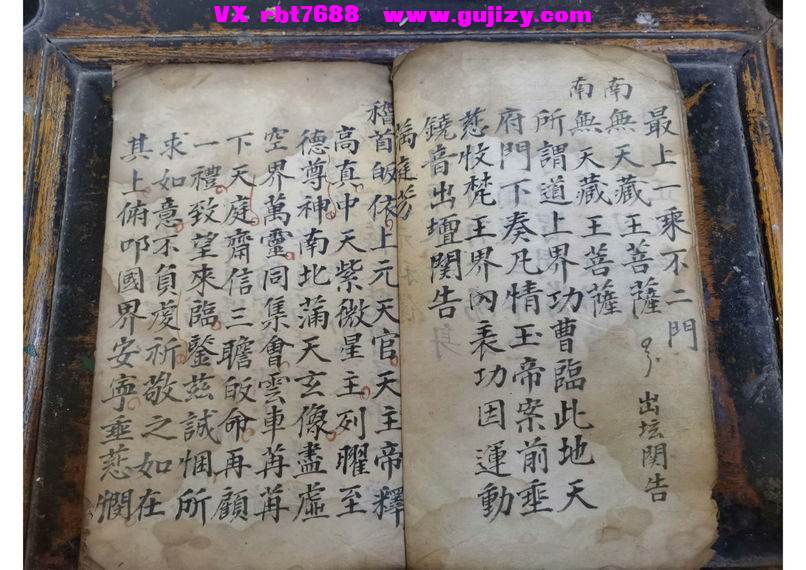 VX rbt7688 www.gujizy.com
最上一乘不二門
南無天藏王菩薩
出坛関告
南無天藏王菩薩
所謂道上界功曹臨此地天
府門下奏凡情玉帝案前垂
慈收梵王界內表功因運動
鐃音出壇関告
滿庭芳
稽首皈依上元天官天主帝釋
高真中天紫微星主列曜至
德尊神南北滿天玄像盡虛
空界萬靈同集會雲車苒苒
下天庭齋信三瞻皈命再顧
一禮致望來臨鑒茲誠悃所
求如意不負虔祈敬之如在
其上俯叩國界安寧垂慈憫